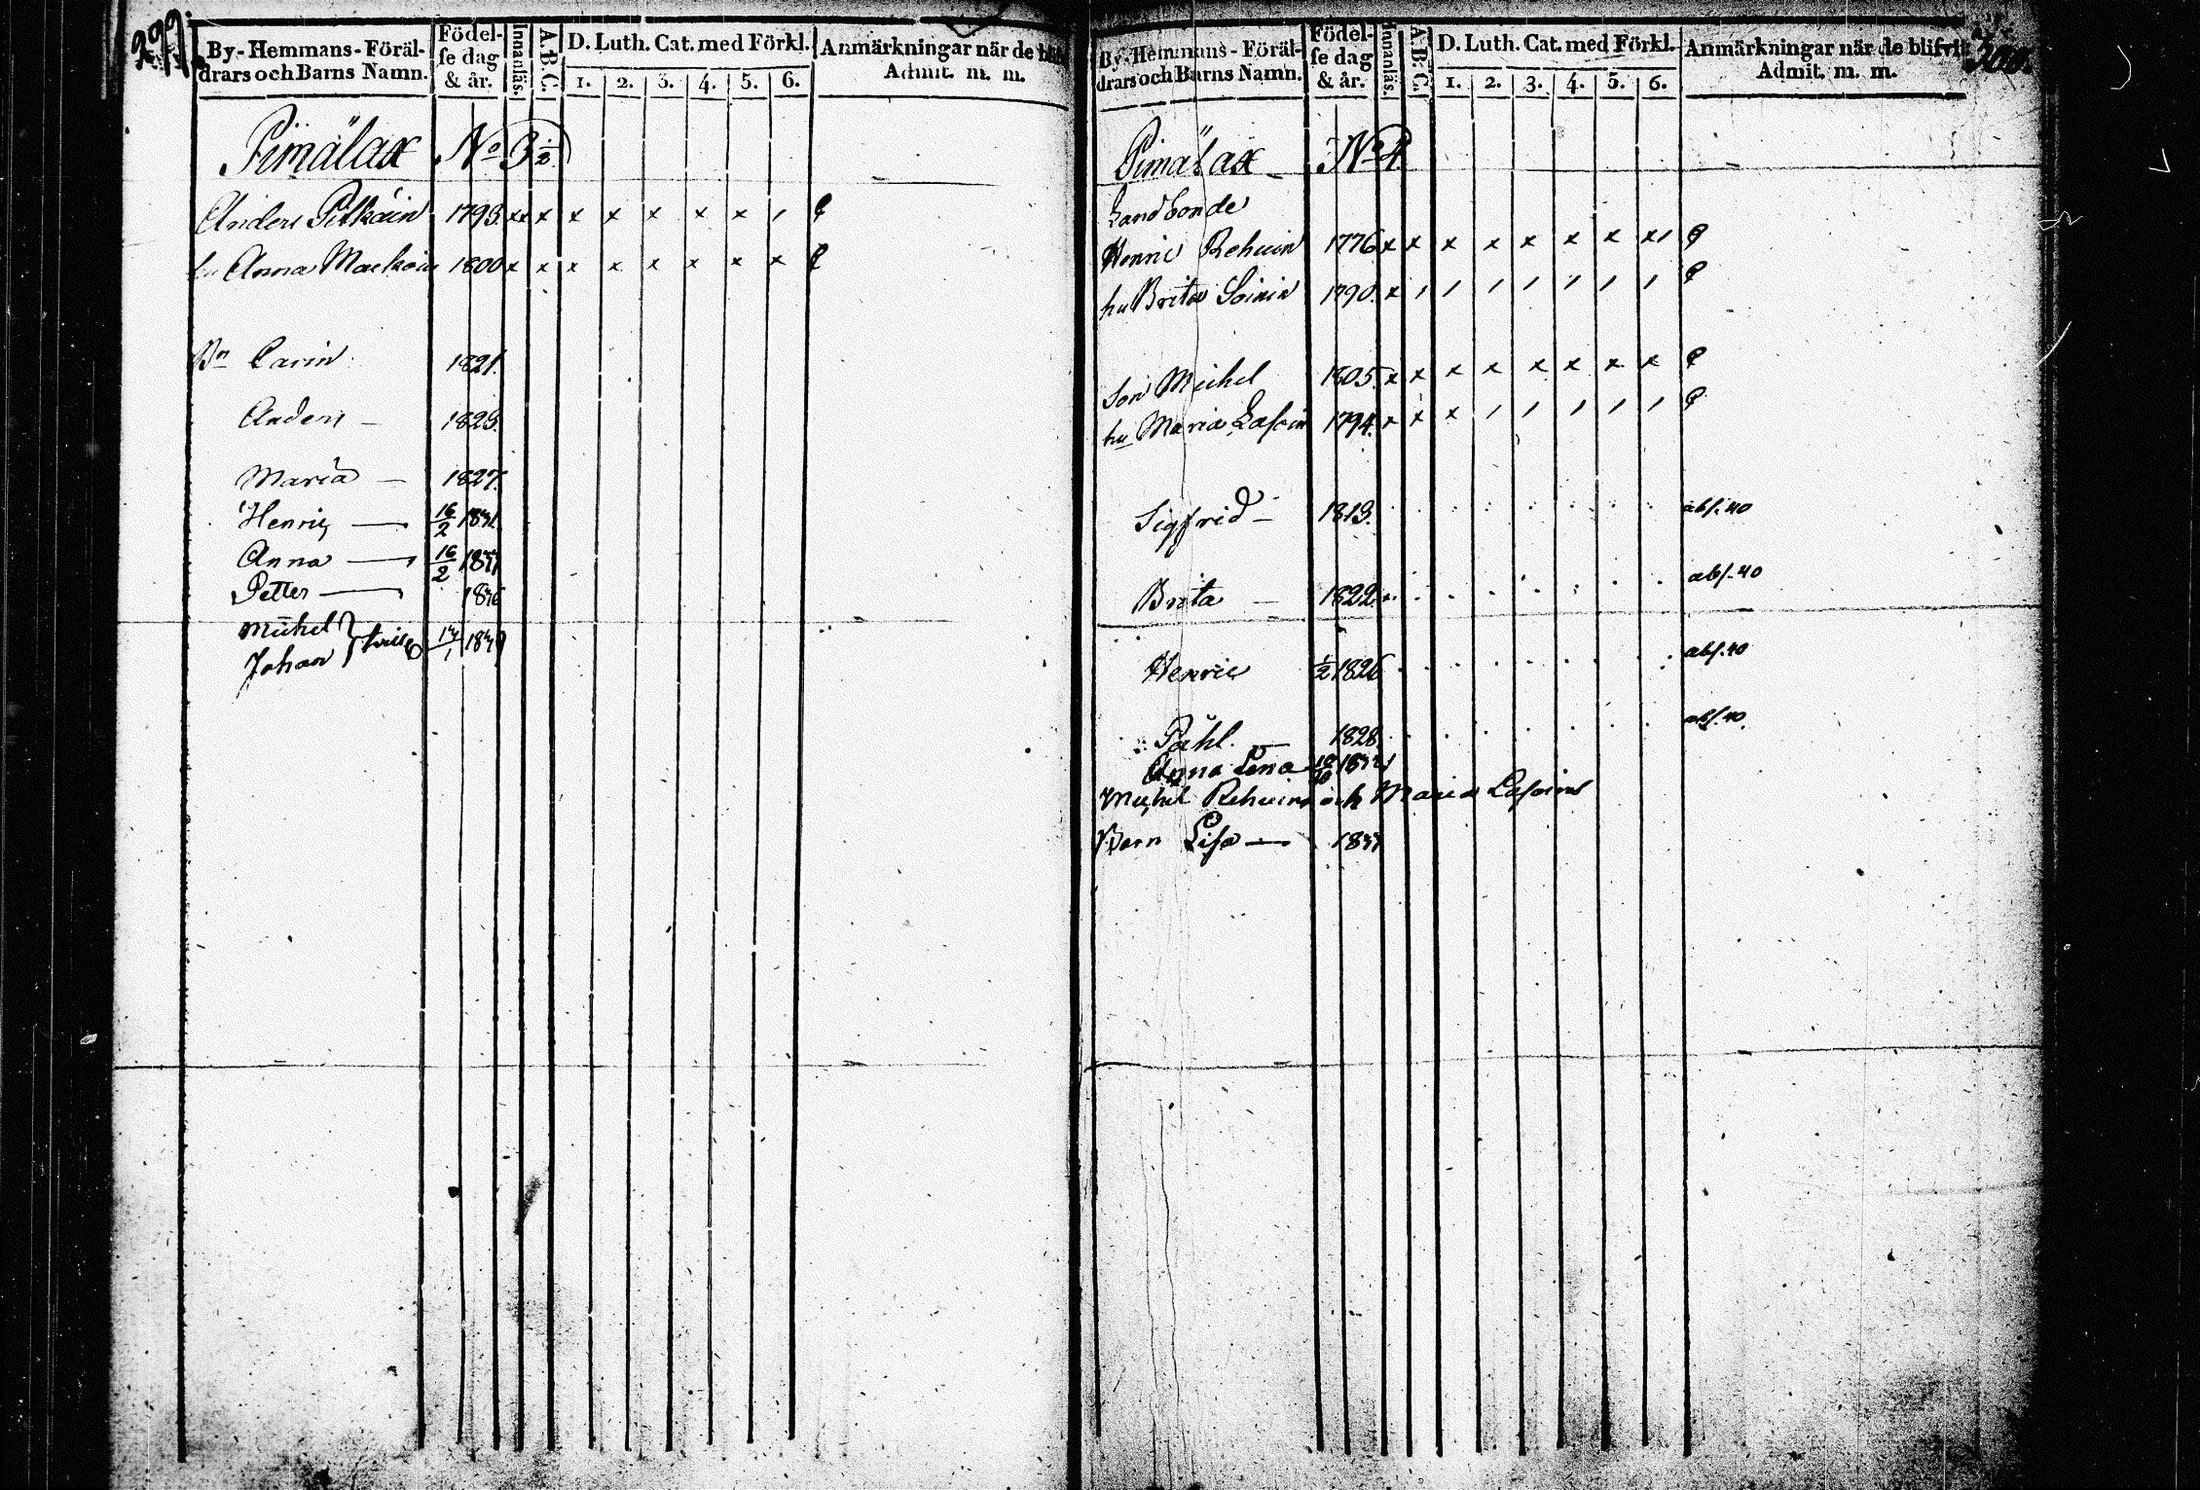 299.
By-Hemmans-Föräl-
drars och Barns Namn.
Födel-
se dag
& år.
Innanläs.
A.B.C.
D. Luth. Cat. med Förkl.
1. 2. 3. 4. 5. 6.
Anmärkningar när de
Admit. m. m.
Pimälax No 3 1/2
Anders Pitkäin 1793. x x x x x x x x
hu Anna 1800 x x x x x x x x
Bn Carin 1821.
Anders – 1823.
Maria – 1827.
Henric — 16/2 1831
Anna — 16/2
Petter — 1836
Michel
Johan
300.
By-Hemmans-Föräl-
drars och Barns Namn.
Födel-
se dag
& år.
Innanläs.
A.B.C.
D. Luth. Cat. med Förkl.
1. 2. 3. 4. 5. 6.
Anmärkningar när de blifvit
Admit. m. m.
Pimälax – No 4
Landbonde
Henric Rehuin 1776 x x x x x x x x
hu Brita Soinin 1790. x
Son Michel 1805. x x x x x x x x
hu Maria Lasoin 1794. x x x
Sigfrid – 1819. abs. 40
Brita – 1822 abs. 40
Henric 1/2 1826 abs. 40
Påhl. – 1828 abs. 40.
Anna Lena
Michel Rehuins och Maria Lasoins
Barn Lisa —